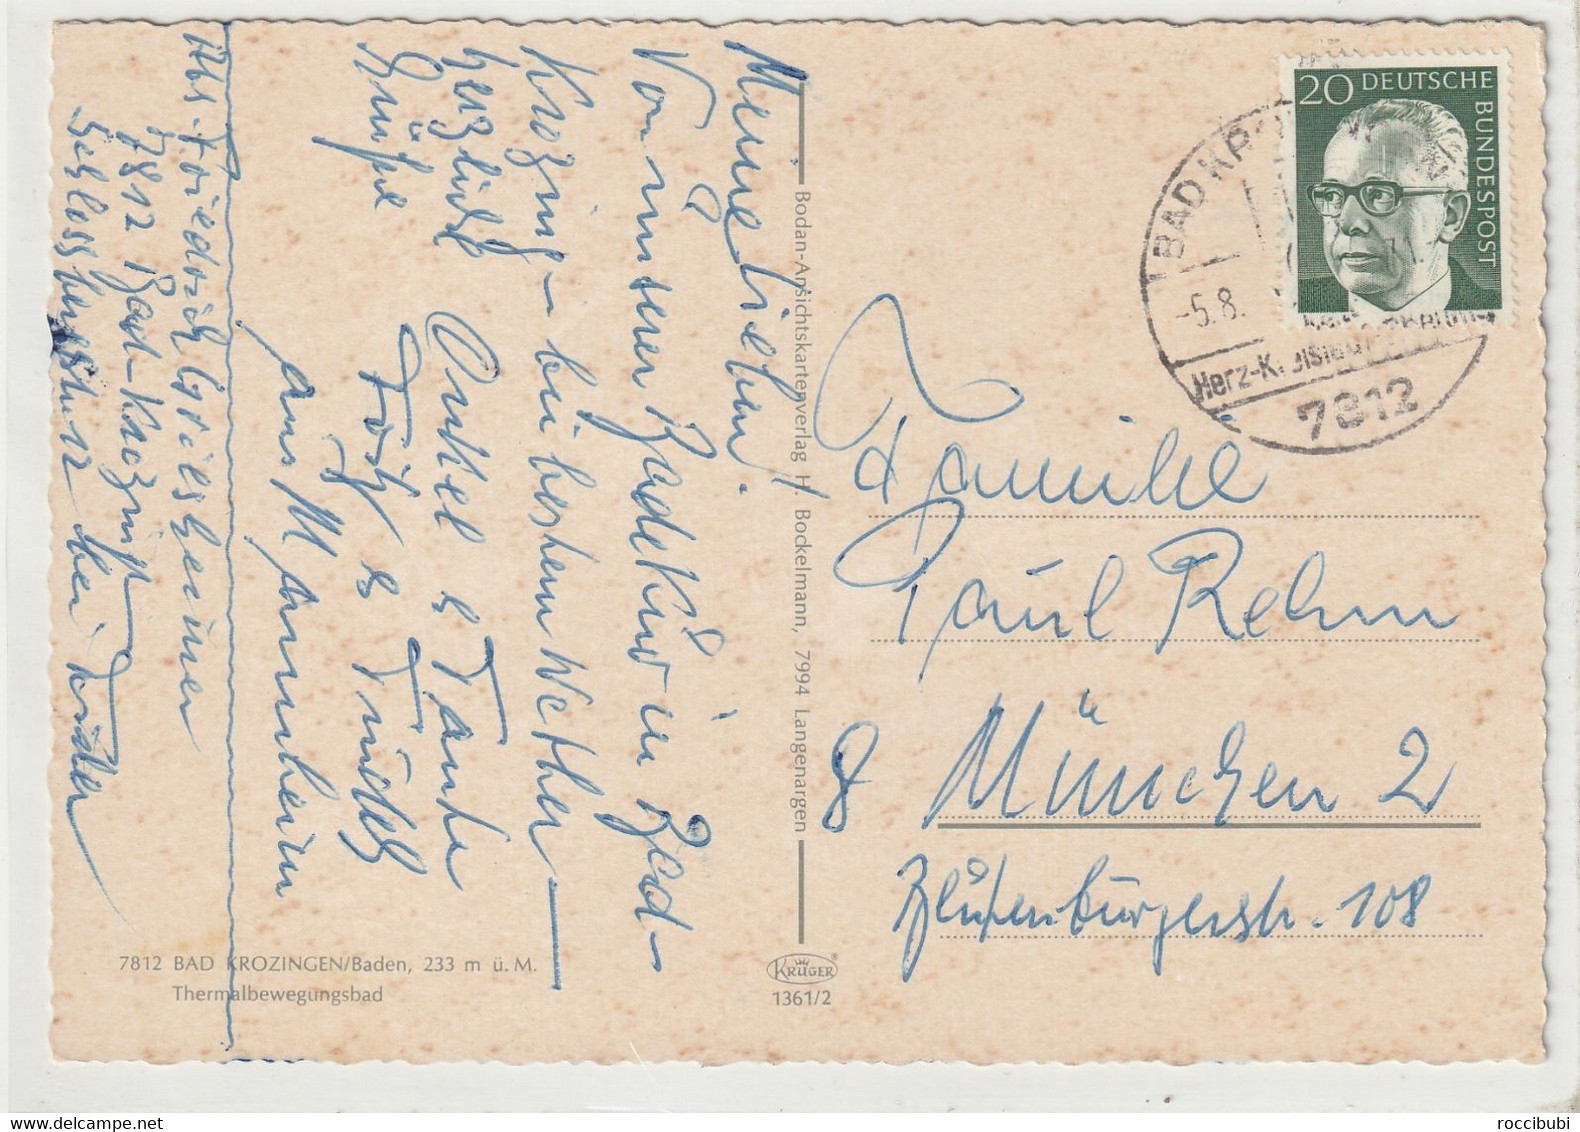 Meine Lieben!
Von unserer Badekur in Bad-
Krozing – bei bestem Wetter –
herzliche
Grüße
Onkel & Tante
Fritz & Trudel
aus Mannheim
Abs. Friedrich Griesheimer
7812 Bad-Krozing
Schlossbergstr. 12 bei
20 DEUTSCHE
BUNDESPOST
BAD KRO
-5.8. 71
Herz-Kreislauf
7812
Familie
Paul Rehm
8 München 2
108
Bodan-Ansichtskartenverlag H. Bockelmann, 7994 Langenargen
KRÜGER®
1361/2
7812 BAD KROZINGEN/Baden, 233 m ü. M.
Thermalbewegungsbad
www.delcampe.net
roccibubi